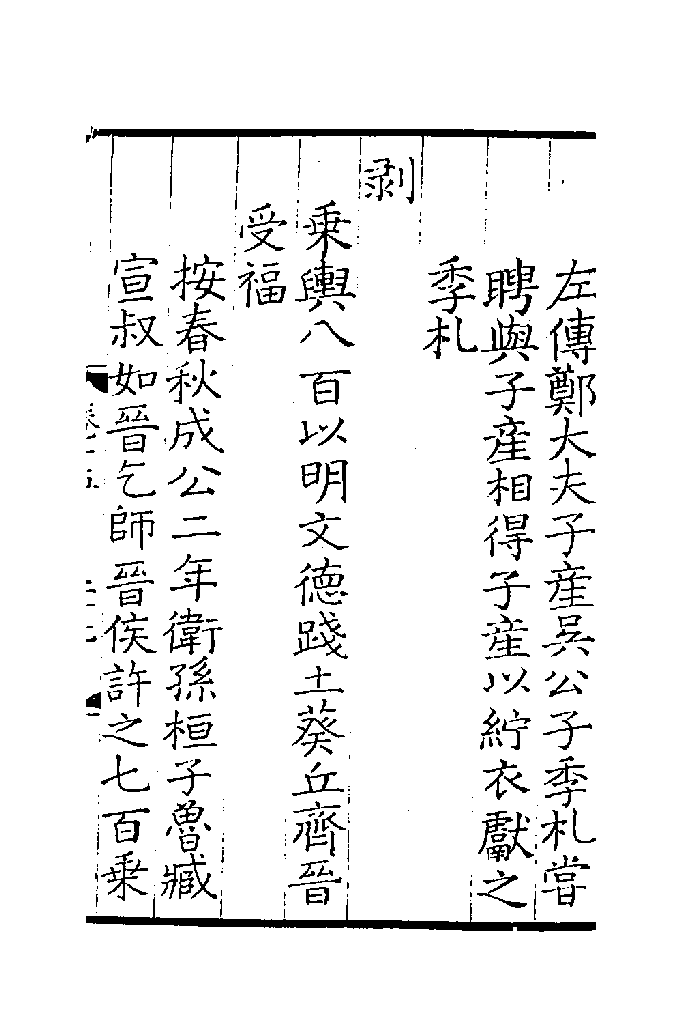 左傳鄭大夫子産吳公子季札嘗
聘與子産相得子産以紵衣獻之
季札
剥
乗輿八百以明文德踐土葵丘齊晉
受福
按春秋成公二年衛孫桓子魯臧
宣叔如晉乞師晉侯許之七百乗